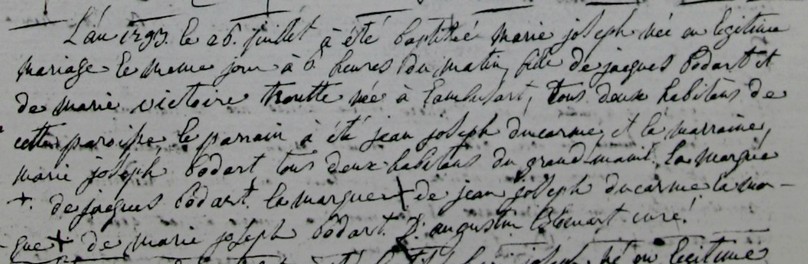 L'an 1793. le 26. juillet à été baptisée marie joseph née en legitime
mariage le meme jour à 6 heures du matin, fille de jacques Bodart et
de marie victoire trouette née à Lambusart, tous deux habitans de
cette paroisse. le parrain à été jean joseph ducarme, et la marraine,
marie joseph Bodart tous deux habitans du grand manil. la marque
+ de jacques Bodart. la marque + de jean joseph ducarme la mar-
que + de marie joseph Bodart. D. augustin curé!
joseph, né en legitime